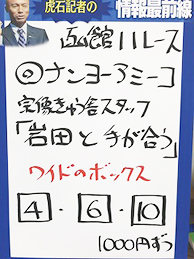 虎石記者の
情報最前線
函館11レース
◎ナンヨーアミーコ
宗像きゅう舎スタッフ
「岩田と手が合う」
ワイドのボックス
4・6・10
1000円ずつ